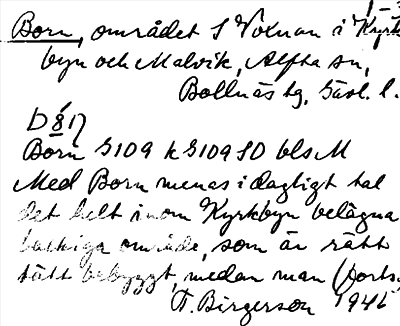 Born, området S Voxnan i Kyrk
byn och Malvik, Alfta sn,
Bollnäs tg, Gävl. l.
Born S109 k S109 SO bls M
Med Born menas i dagligt tal
det helt inom Kyrkbyn belägna
backiga område, som är rätt
tätt bebyggt, medan man (forts.
T. Birgerson 1946